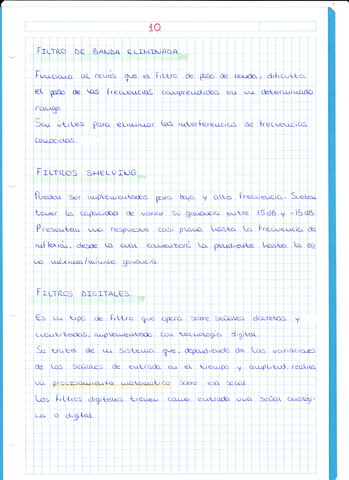 10
FILTRO DE BANDA ELIMINADA
Funciona al revés que el filtro de paso de banda, dificulta
el paso de las frecuencias comprendidas en un determinado
rango.
Son útiles para eliminar las interferencias de frecuencias
conocidas.
FILTROS SHELVING
Pueden ser implementados para baja y alta frecuencia. Suelen
tener la capacidad de variar su ganancia entre 15dB y -15dB.
Presentan una respuesta casi plana hasta la frecuencia de
inflexión, desde la cual comenzará la pendiente hasta la
una máxima/mínima ganancia.
FILTROS DIGITALES
Es un tipo de filtro que opera sobre señales discretas y
cuantizadas, implementado con tecnología digital.
Se trata de un sistema que, dependiendo de las variaciones
de las señales de entrada en el tiempo y amplitud, realiza
un procesamiento matemático sobre esa señal.
Los filtros digitales tienen como entrada una señal analógi-
ca o digital.